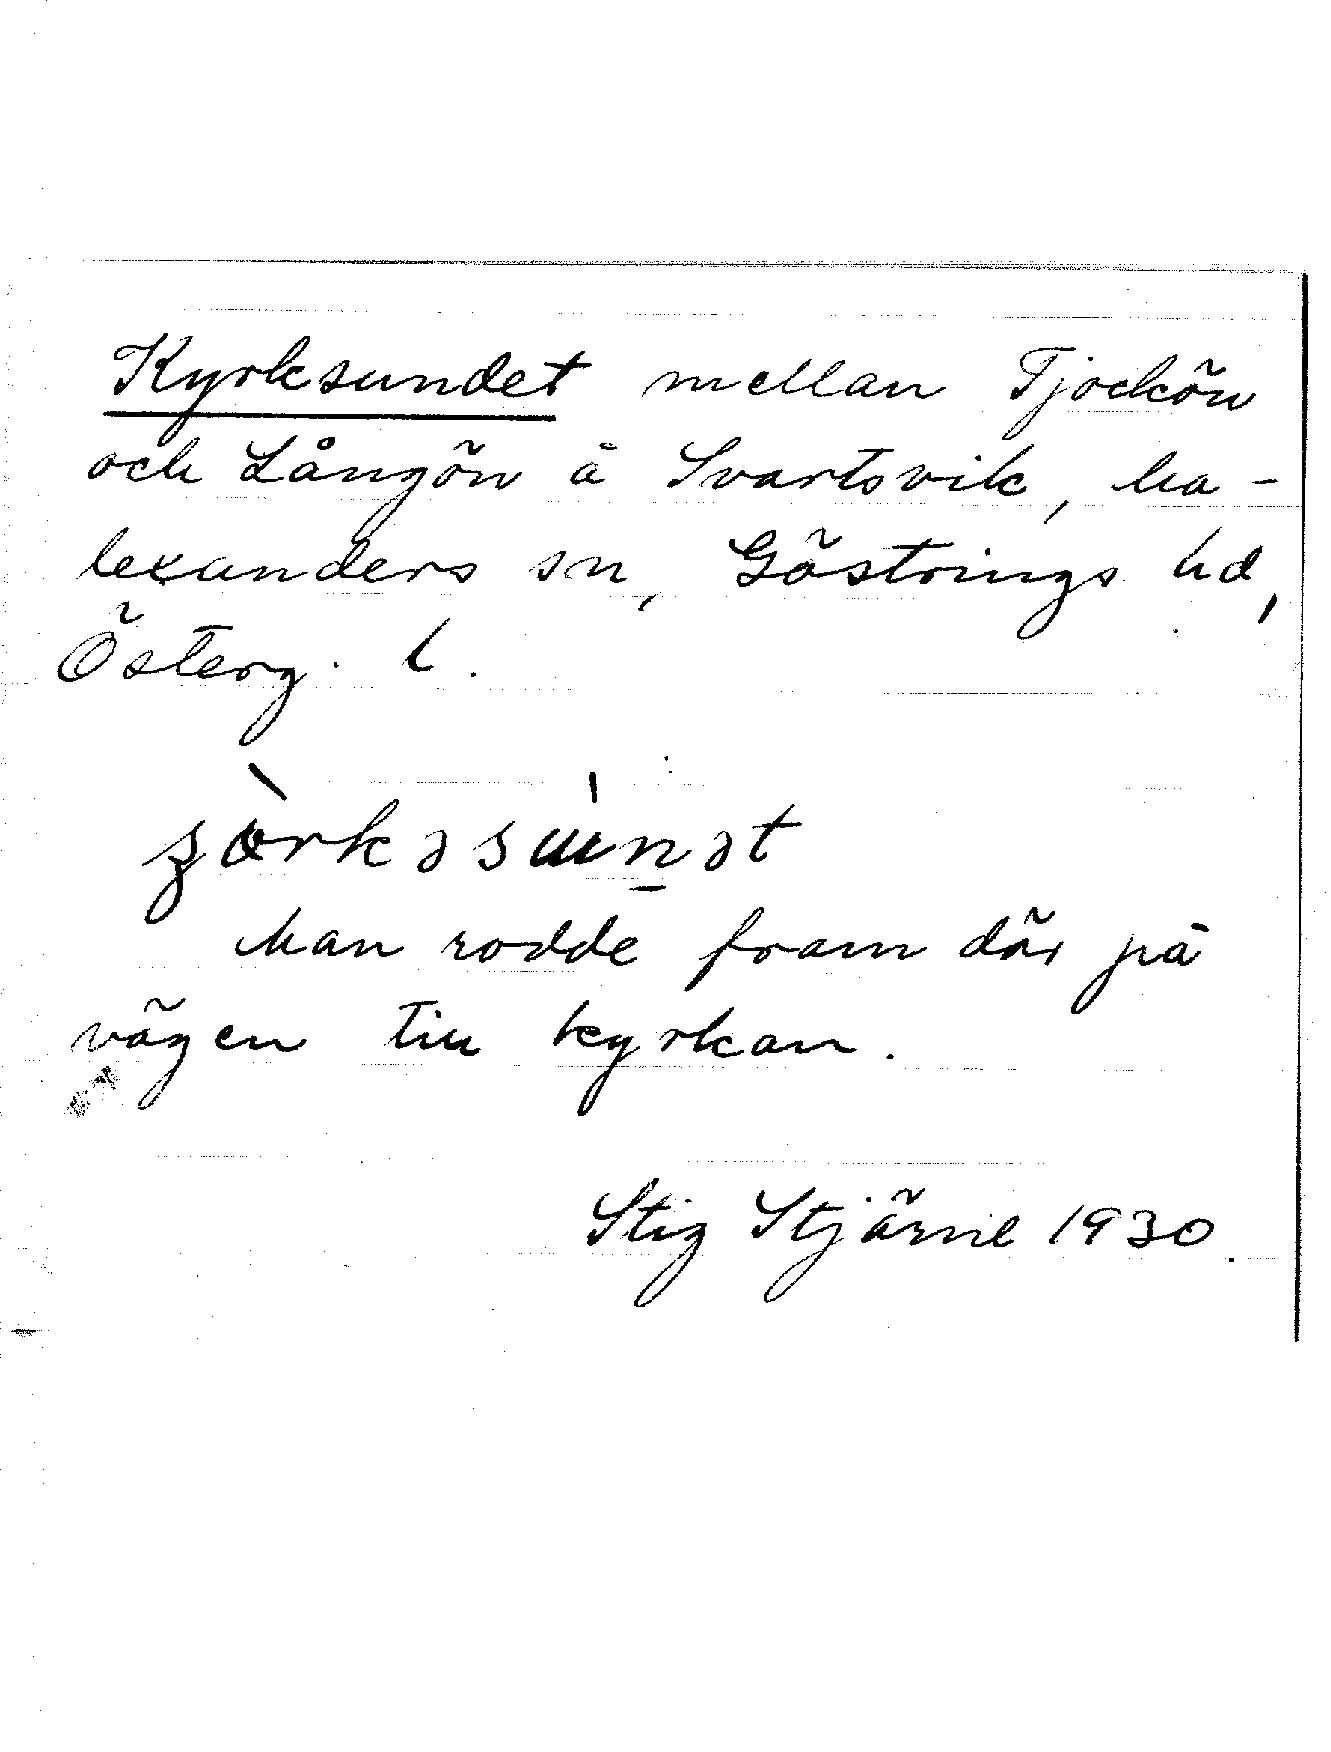 Kyrksundet mellan Tjockön
och Långön å Svartsvik, Ma-
lexanders sn, Göstrings hd,
Österg. l.
Man rodde fram där på
vägen till kyrkan.
Stig Stjärne 1930.